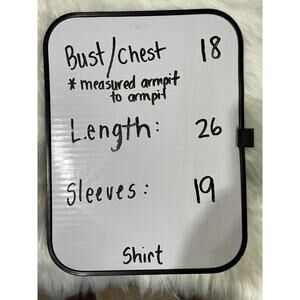 Bust/Chest 18
* measured armpit
to armpit
Length: 26
Sleeves: 19
Shirt